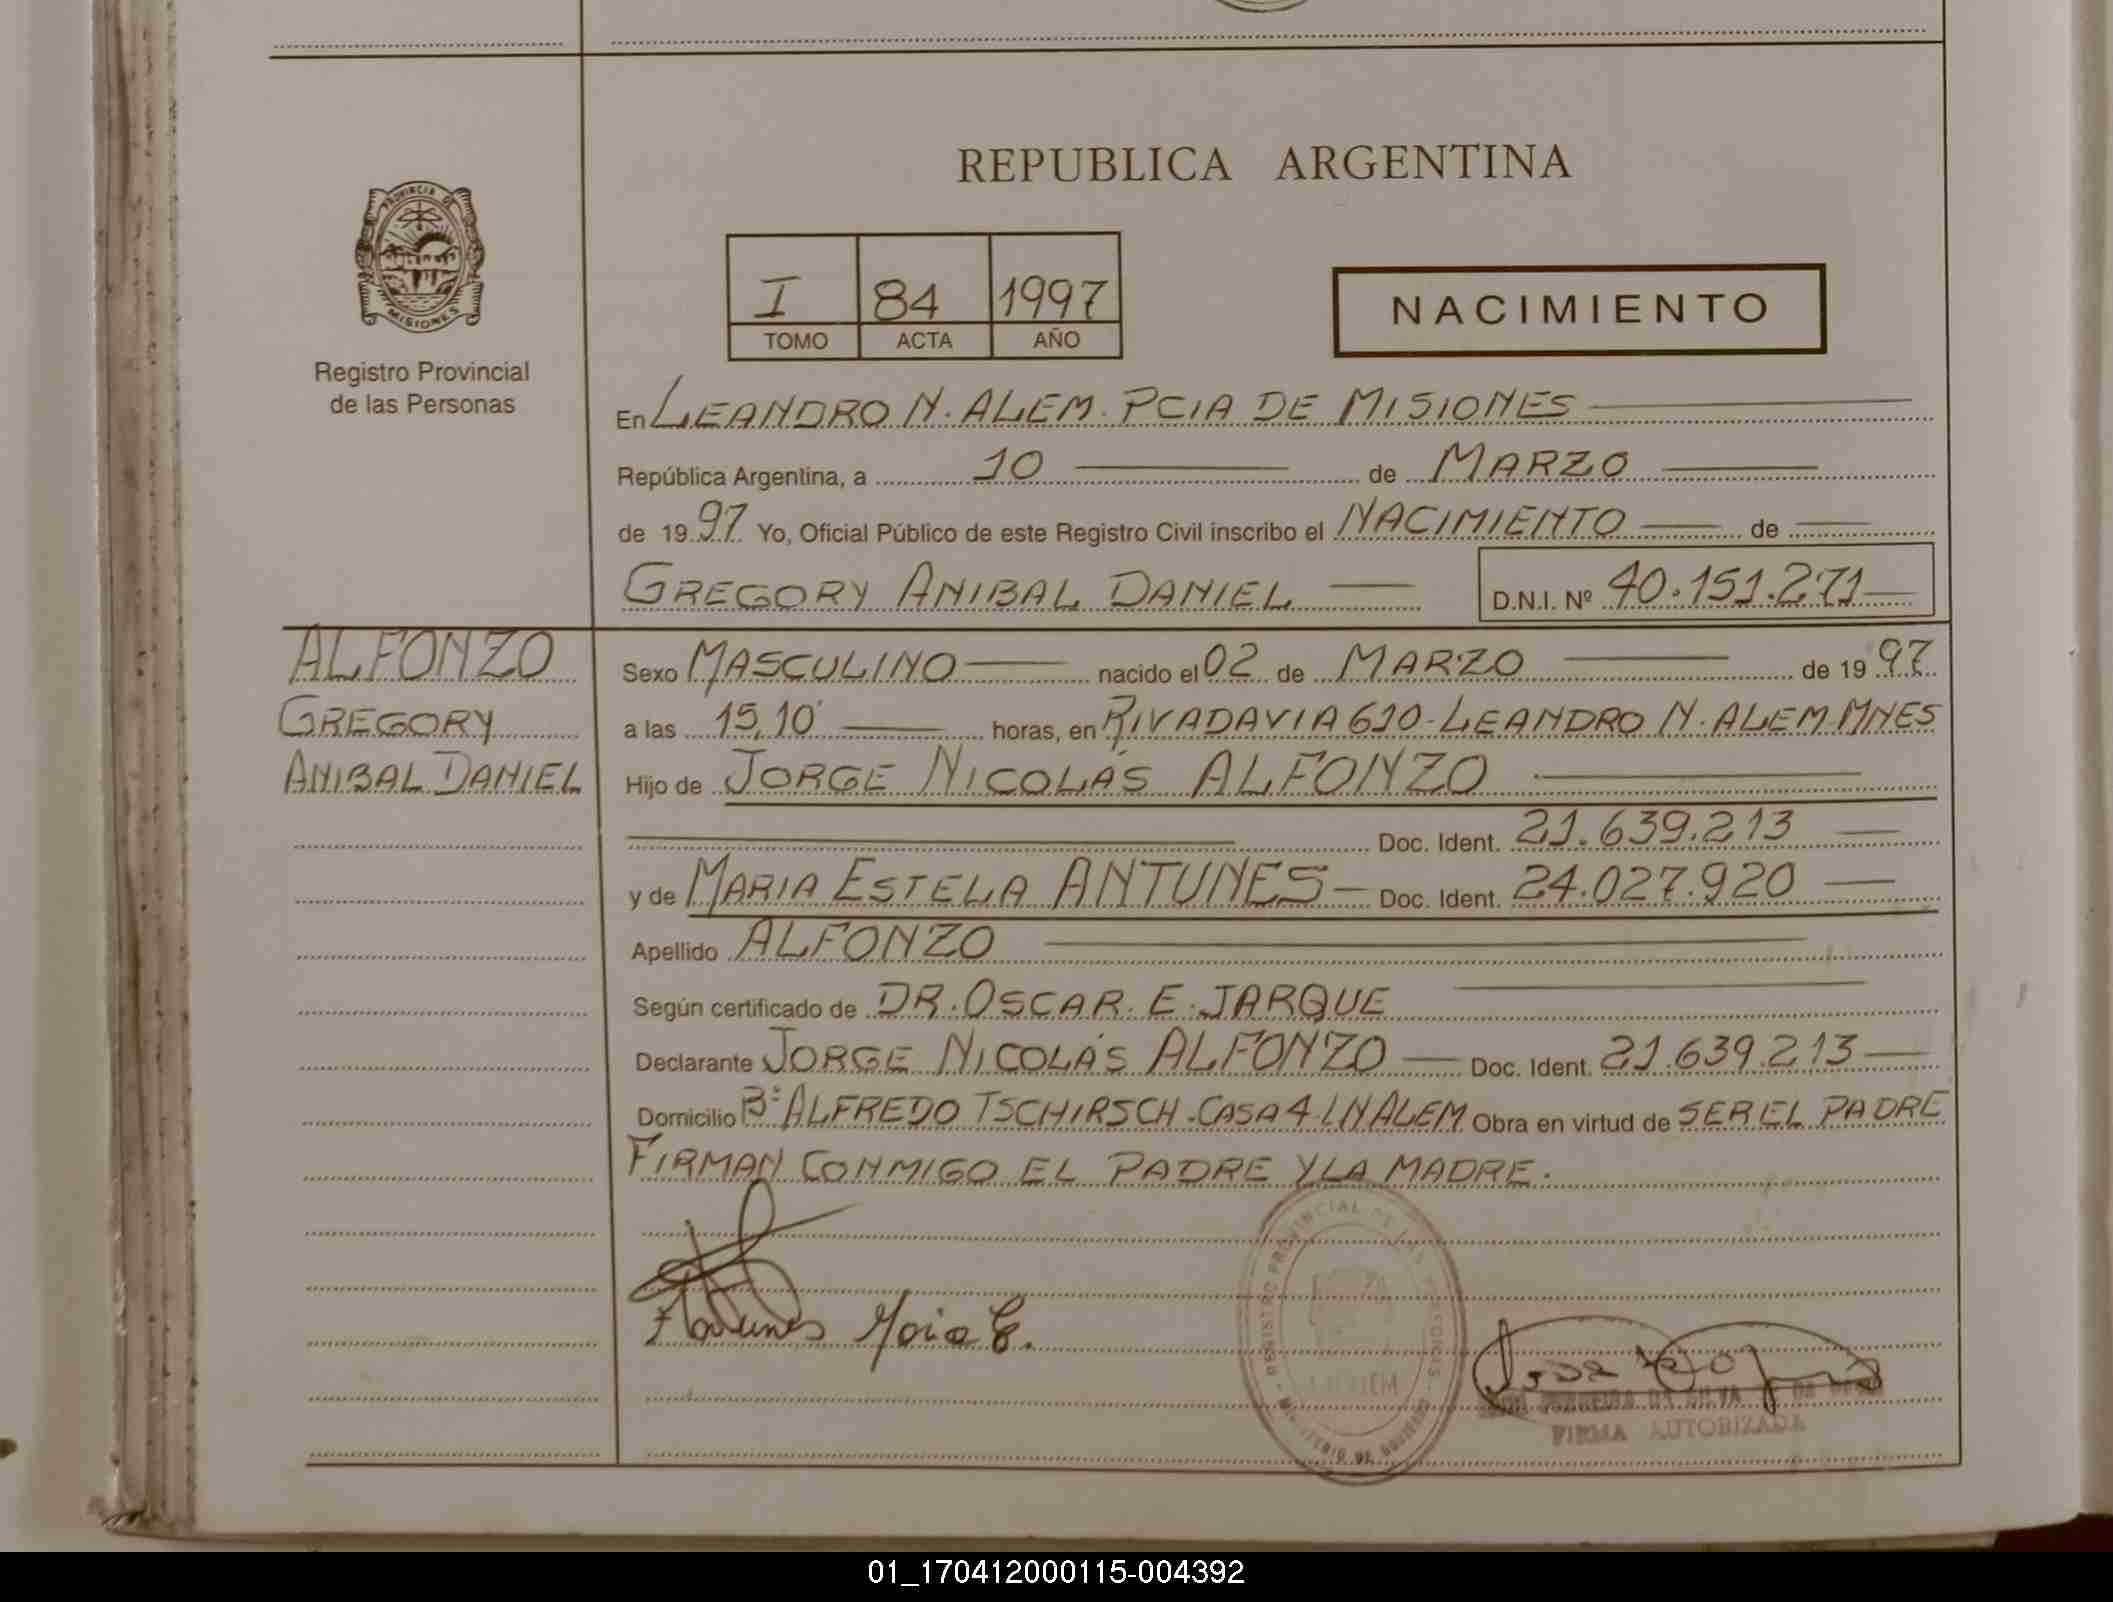 REPUBLICA ARGENTINA
PROVINCIA DE MISIONES
Registro Provincial
de las Personas
I 84 1997
TOMO ACTA AÑO
NACIMIENTO
En LEANDRO N. ALEM. PCIA DE MISIONES
República Argentina, a 10 de MARZO
de 1997 Yo, Oficial Público de este Registro Civil inscribo el NACIMIENTO de
GREGORY ANIBAL DANIEL D.N.I. Nº 40.151.271
ALFONZO
GREGORY
ANIBAL DANIEL
Sexo MASCULINO nacido el 02 de MARZO de 1997
a las 15,10 horas, en RIVADAVIA 610-LEANDRO N. ALEM-MNES
Hijo de JORGE NICOLÁS ALFONZO
Doc. Ident. 21.639.213
y de MARIA ESTELA ANTUNES Doc. Ident. 24.027.920
Apellido ALFONZO
Según certificado de DR. OSCAR E. JARQUE
Declarante JORGE NICOLÁS ALFONZO Doc. Ident. 21.639.213
Domicilio Bº ALFREDO TSCHIRSCH-CASA 4-LNALEM Obra en virtud de SER EL PADRE
FIRMAN CONMIGO EL PADRE Y LA MADRE.
REGISTRO PROVINCIAL DE LAS PERSONAS - MINISTERIO DE GOBIERNO
DA SILVA
FIRMA AUTORIZADA
01_170412000115-004392